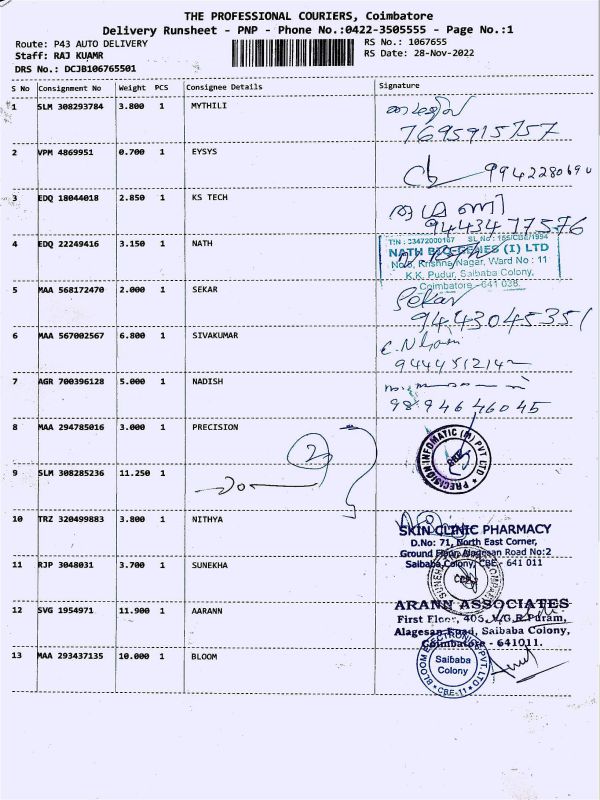 THE PROFESSIONAL COURIERS, Coimbatore
Delivery Runsheet - PNP - Phone No.:0422-3505555 - Page No.:1
Route: P43 AUTO DELIVERY RS No.: 1067655
Staff: RAJ KUAMR RS Date: 28-Nov-2022
DRS No.: DCJB106765501
S No Consignment No Weight PCS Consignee Details Signature
1 SLM 308293784 3.800 1 MYTHILI
7695915757
2 VPM 4869951 0.700 1 EYSYS
3 EDQ 18044018 2.850 1 KS TECH
9443477576
4 EDQ 22249416 3.150 1 NATH
NATH BIO-GENES (I) LTD
No:6, Krishna Nagar, Ward No : 11
K.K. Pudur, Saibaba Colony,
Coimbatore - 641 038.
5 MAA 568172470 2.000 1 SEKAR Sekar
9443045351
6 MAA 567002567 6.800 1 SIVAKUMAR
7 AGR 700396128 5.000 1 NADISH
9894646045
8 MAA 294785016 3.000 1 PRECISION
PRECISION INFOMATIC (M) PVT LTD
9 SLM 308285236 11.250 1
10 TRZ 320499883 3.800 1 NITHYA
SKIN CLINIC PHARMACY
D.No: 71, North East Corner,
Ground Floor, Alagesan Road No:2
Saibaba Colony, CBE - 641 011
11 RJP 3048031 3.700 1 SUNEKHA
12 SVG 1954971 11.900 1 AARANN
ARANN ASSOCIATES
First Floor, 405, V.G.R Puram,
Alagesan Road, Saibaba Colony,
Coimbatore - 641011.
13 MAA 293437135 10.000 1 BLOOM
BLOOM ELECTRONICS PVT. LTD
Saibaba
Colony
CBE-11